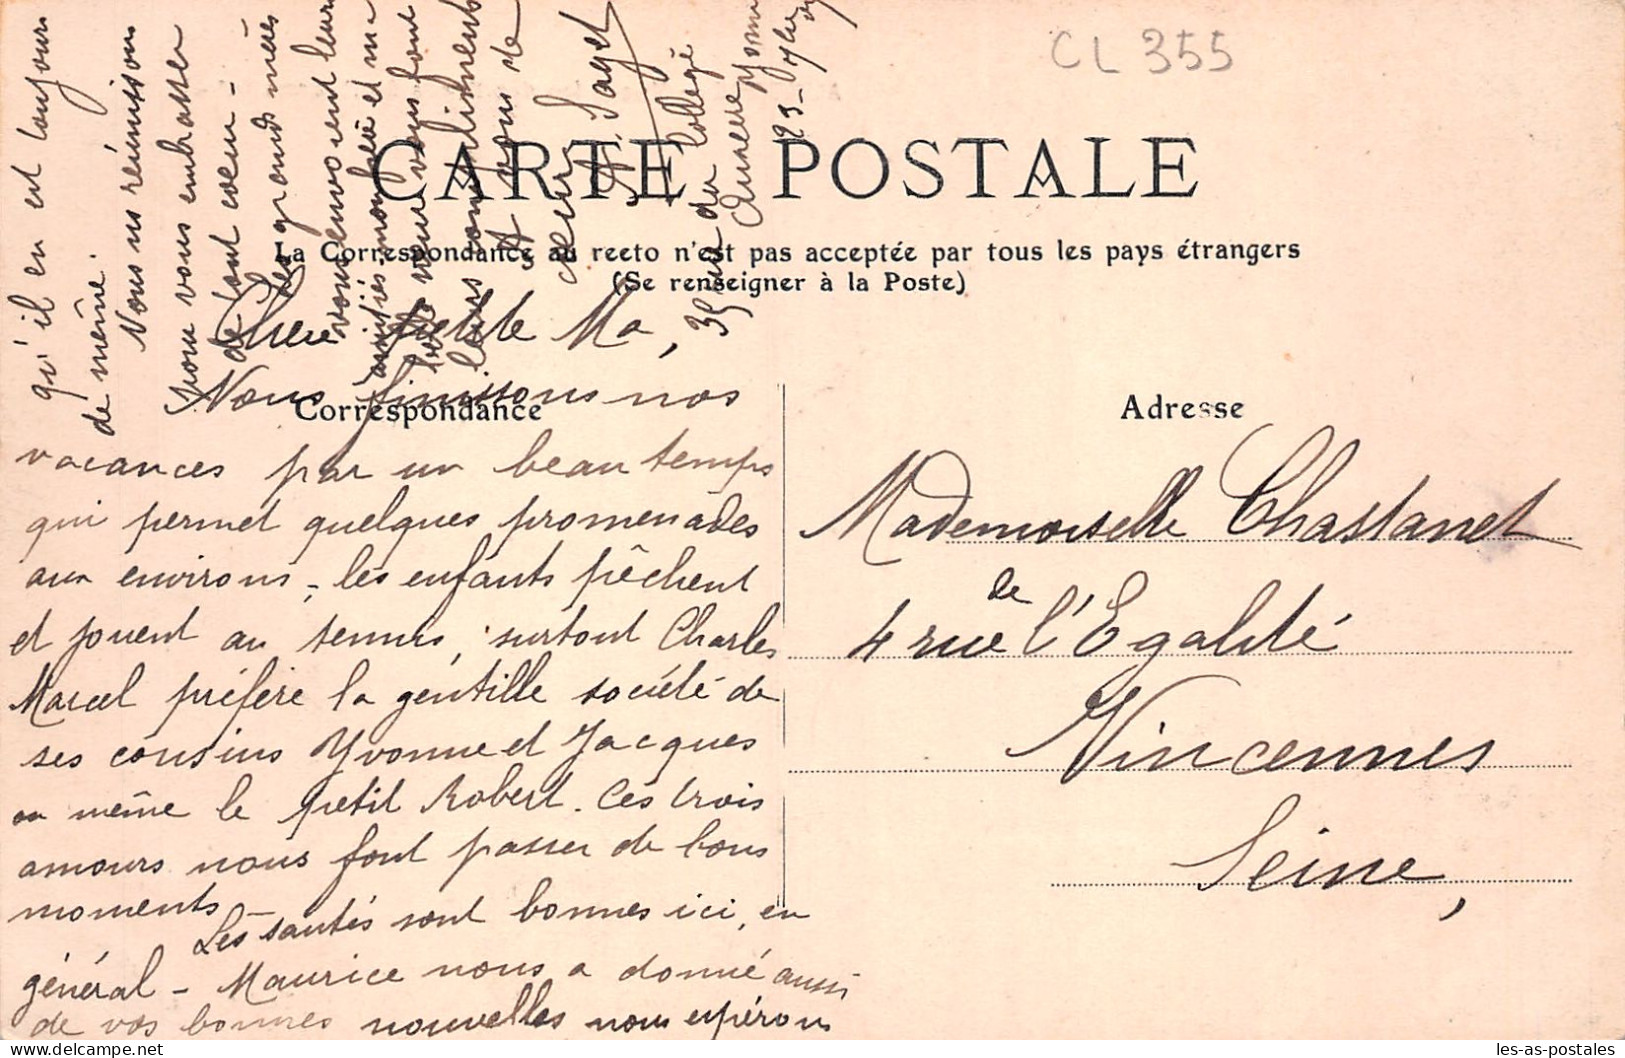 CL 355
CARTE POSTALE
La Correspondance au recto n'est pas acceptée par tous les pays étrangers
(Se renseigner à la Poste)
Correspondance
Adresse
Chère petite Ma,
Nous finissons nos
vacances par un beau temps
qui permet quelques promenades
aux environs, les enfants pêchent
et jouent au tennis, surtout Charles
Marcel préfère la gentille société de
ses cousins Yvonne et Jacques
ou même le petit Robert. Ces trois
amours nous font passer de bons
moments -
Les santés sont bonnes ici, en
général - Maurice nous a donné aussi
de vos bonnes nouvelles nous espérons
qu'il en est toujours
de même.
Nous nous réunissons
pour vous embrasser
de tout coeur -
Les grands mères
vous envoient leurs
amitiés
vous font
leurs compliments
Et vous
A. Saget
35 rue du Collège
Auxerre Yonne
23
Mademoiselle Chastanet
4 rue de l'Egalité
Vincennes
Seine,
les-as-postales